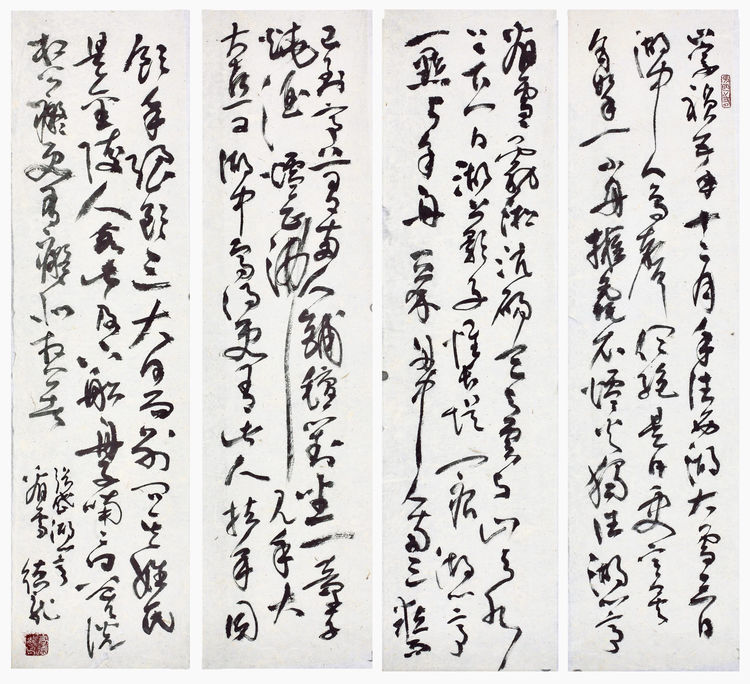 崇禎五年十二月余住西湖大雪三日
湖中人鳥聲俱絕是日更定矣
余拏一小舟擁毳衣爐火獨往湖心亭
看雪霧凇沆碭天與雲與山與水
上下一白湖上影子惟長堤一痕湖心亭
一點與余舟一芥舟中人兩三粒而
已到亭上有兩人鋪氈對坐一童子
燒酒爐正沸見余大
喜曰湖中焉得更有此人拉余同
飲余強飲三大白而別問其姓氏
是金陵人客此及下船舟子喃喃曰莫說
相公癡更有癡似相公者
張岱湖心亭
看雪